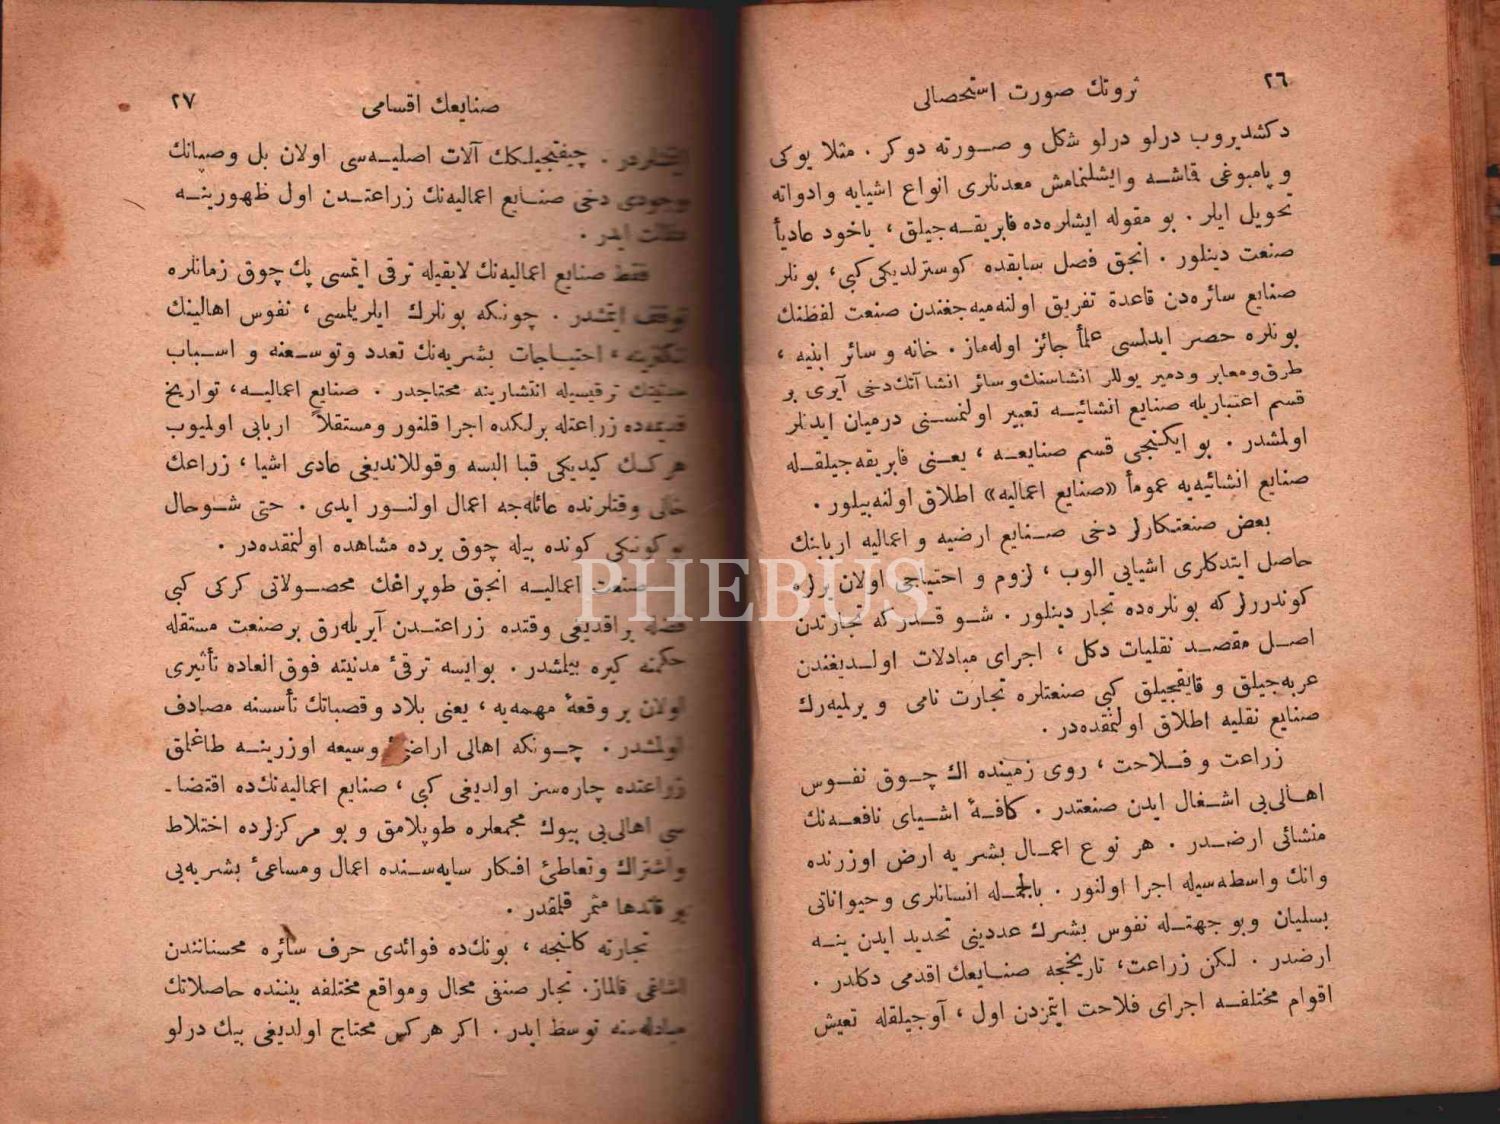 ثروتك صورت استحصالی ٢٦
دكشدیروب درلو درلو شكل و صورته دوكر . مثلا یوكی
و پاموغی قاشه وایشلنمامش معدنلری انواع اشیایه وادواته
تحویل ایلر . بو مقوله ایشلره‌ده فابریقه‌جیلق ، یاخود عادیأ
صنعت دینلور . انجق فصل سابقده كوسترلدیكی كبی ، بونلر
صنایع سائره‌دن قاعدة تفریق اولنه‌میه‌جغندن صنعت لفظنك
بونلره حصر ایدلسی علمأ جائز اوله‌ماز . خانه و سائر ابنیه ،
طرق‌ومعابر ودمیر یوللر انشاسنك‌وسائر انشاآتك‌دخی آیری بر
قسم اعتباریله صنایع انشائیه تعبیر اولنمسنی درمیان ایدنلر
اولمشدر . بو ایكنجی قسم صنایعه ، یعنی فابریقه‌جیلقله
صنایع انشائیه‌یه عمومأ «صنایع اعمالیه» اطلاق اولنه‌بیلور .
بعض صنعتكارلر دخی صنایع ارضیه و اعمالیه اربابنك
حاصل ایتدكلری اشیایی الوب ، لزوم و احتیاجی اولان یرلره
كوندررلركه بونلره‌ده تجار دینلور . شو قدركه تجارتدن
اصل مقصد نقلیات دكل ، اجرای مبادلات اولدیغندن
عربه‌جیلق و قایقجیلق كبی صنعتلره تجارت نامی ویرلمیه‌رك
صنایع نقلیه اطلاق اولنمقده‌در .
زراعت و فلاحت ، روی زمینده اك چوق نفوس
اهالی‌یی اشغال ایدن صنعتدر . كافۀ اشیای نافعه‌نك
منشائی ارضدر . هر نوع اعمال بشریه ارض اوزرنده
وانك واسطه‌سیله اجرا اولنور . بالجمله انسانلری وحیواناتی
بسلیان وبو جهتله نفوس بشرك عددینی تحدید ایدن ینه
ارضدر . لكن زراعت، تاریخجه صنایعك اقدمی دكلدر .
اقوام مختلفه اجرای فلاحت ایتمزدن اول ، آوجیلقله تعیش
صنایعك اقسامی ٢٧
ایتشلردر . چیفتجیلكك آلات اصلیه‌سی اولان بل وصپانك
وجودی دخی صنایع اعمالیه‌نك زراعتدن اول ظهورینه
ایدر .
فقط صنایع اعمالیه‌نك لایقیله ترقی ایتمسی پك چوق زمانلره
توقف ایتمشدر . چونكه بونلرك ایلریلمسی ، نفوس اهالینك
تكثرینه ، احتیاجات بشریه‌نك تعدد وتوسعنه و اسباب
ترقیسیله انتشارینه محتاجدر . صنایع اعمالیه ، تواریخ
قدیمه‌ده زراعتله برلكده اجرا قلنور ومستقلاً اربابی اولمیوب
هركسك كیدیكی قبا البسه وقوللاندیغی عادی اشیا ، زراعك
خالی وقتلرنده عائله‌جه اعمال اولنور ایدی . حتی شوحال
بو كونكی كونده بیله چوق یرده مشاهده اولنمقده‌در .
صنعت اعمالیه انجق طوپراغك محصولاتی كركی كبی
فضله براقدیغی وقتده زراعتدن آیریله‌رق برصنعت مستقله
حكمنه كیره بیلمشدر . بوایسه ترقئ مدنیته فوق العاده تأثیری
اولان بر وقعۀ مهمه‌یه ، یعنی بلاد وقصباتك تأسسنه مصادف
اولمشدر . چونكه اهالی اراضئ وسیعه اوزرینه طاغلمق
زراعتده چاره‌سز اولدیغی كبی ، صنایع اعمالیه‌نك‌ده اقتضاـ
سی اهالی‌یی بیوك مجمعلره طوپلامق و بو مركزلرده اختلاط
واشتراك وتعاطئ افكار سایه‌سنده اعمال ومساعئ بشریه‌یی
بر قاتدها مثمر قلمقدر .
تجارته كلنجه ، بونك‌ده فوائدی حرف سائره محسناتندن
اشاغی قالماز. تجار صنفی محال ومواقع مختلفه بیننده حاصلاتك
مبادله‌سنه توسط ایدر . اكر هركس محتاج اولدیغی بیك درلو
PHEBUS